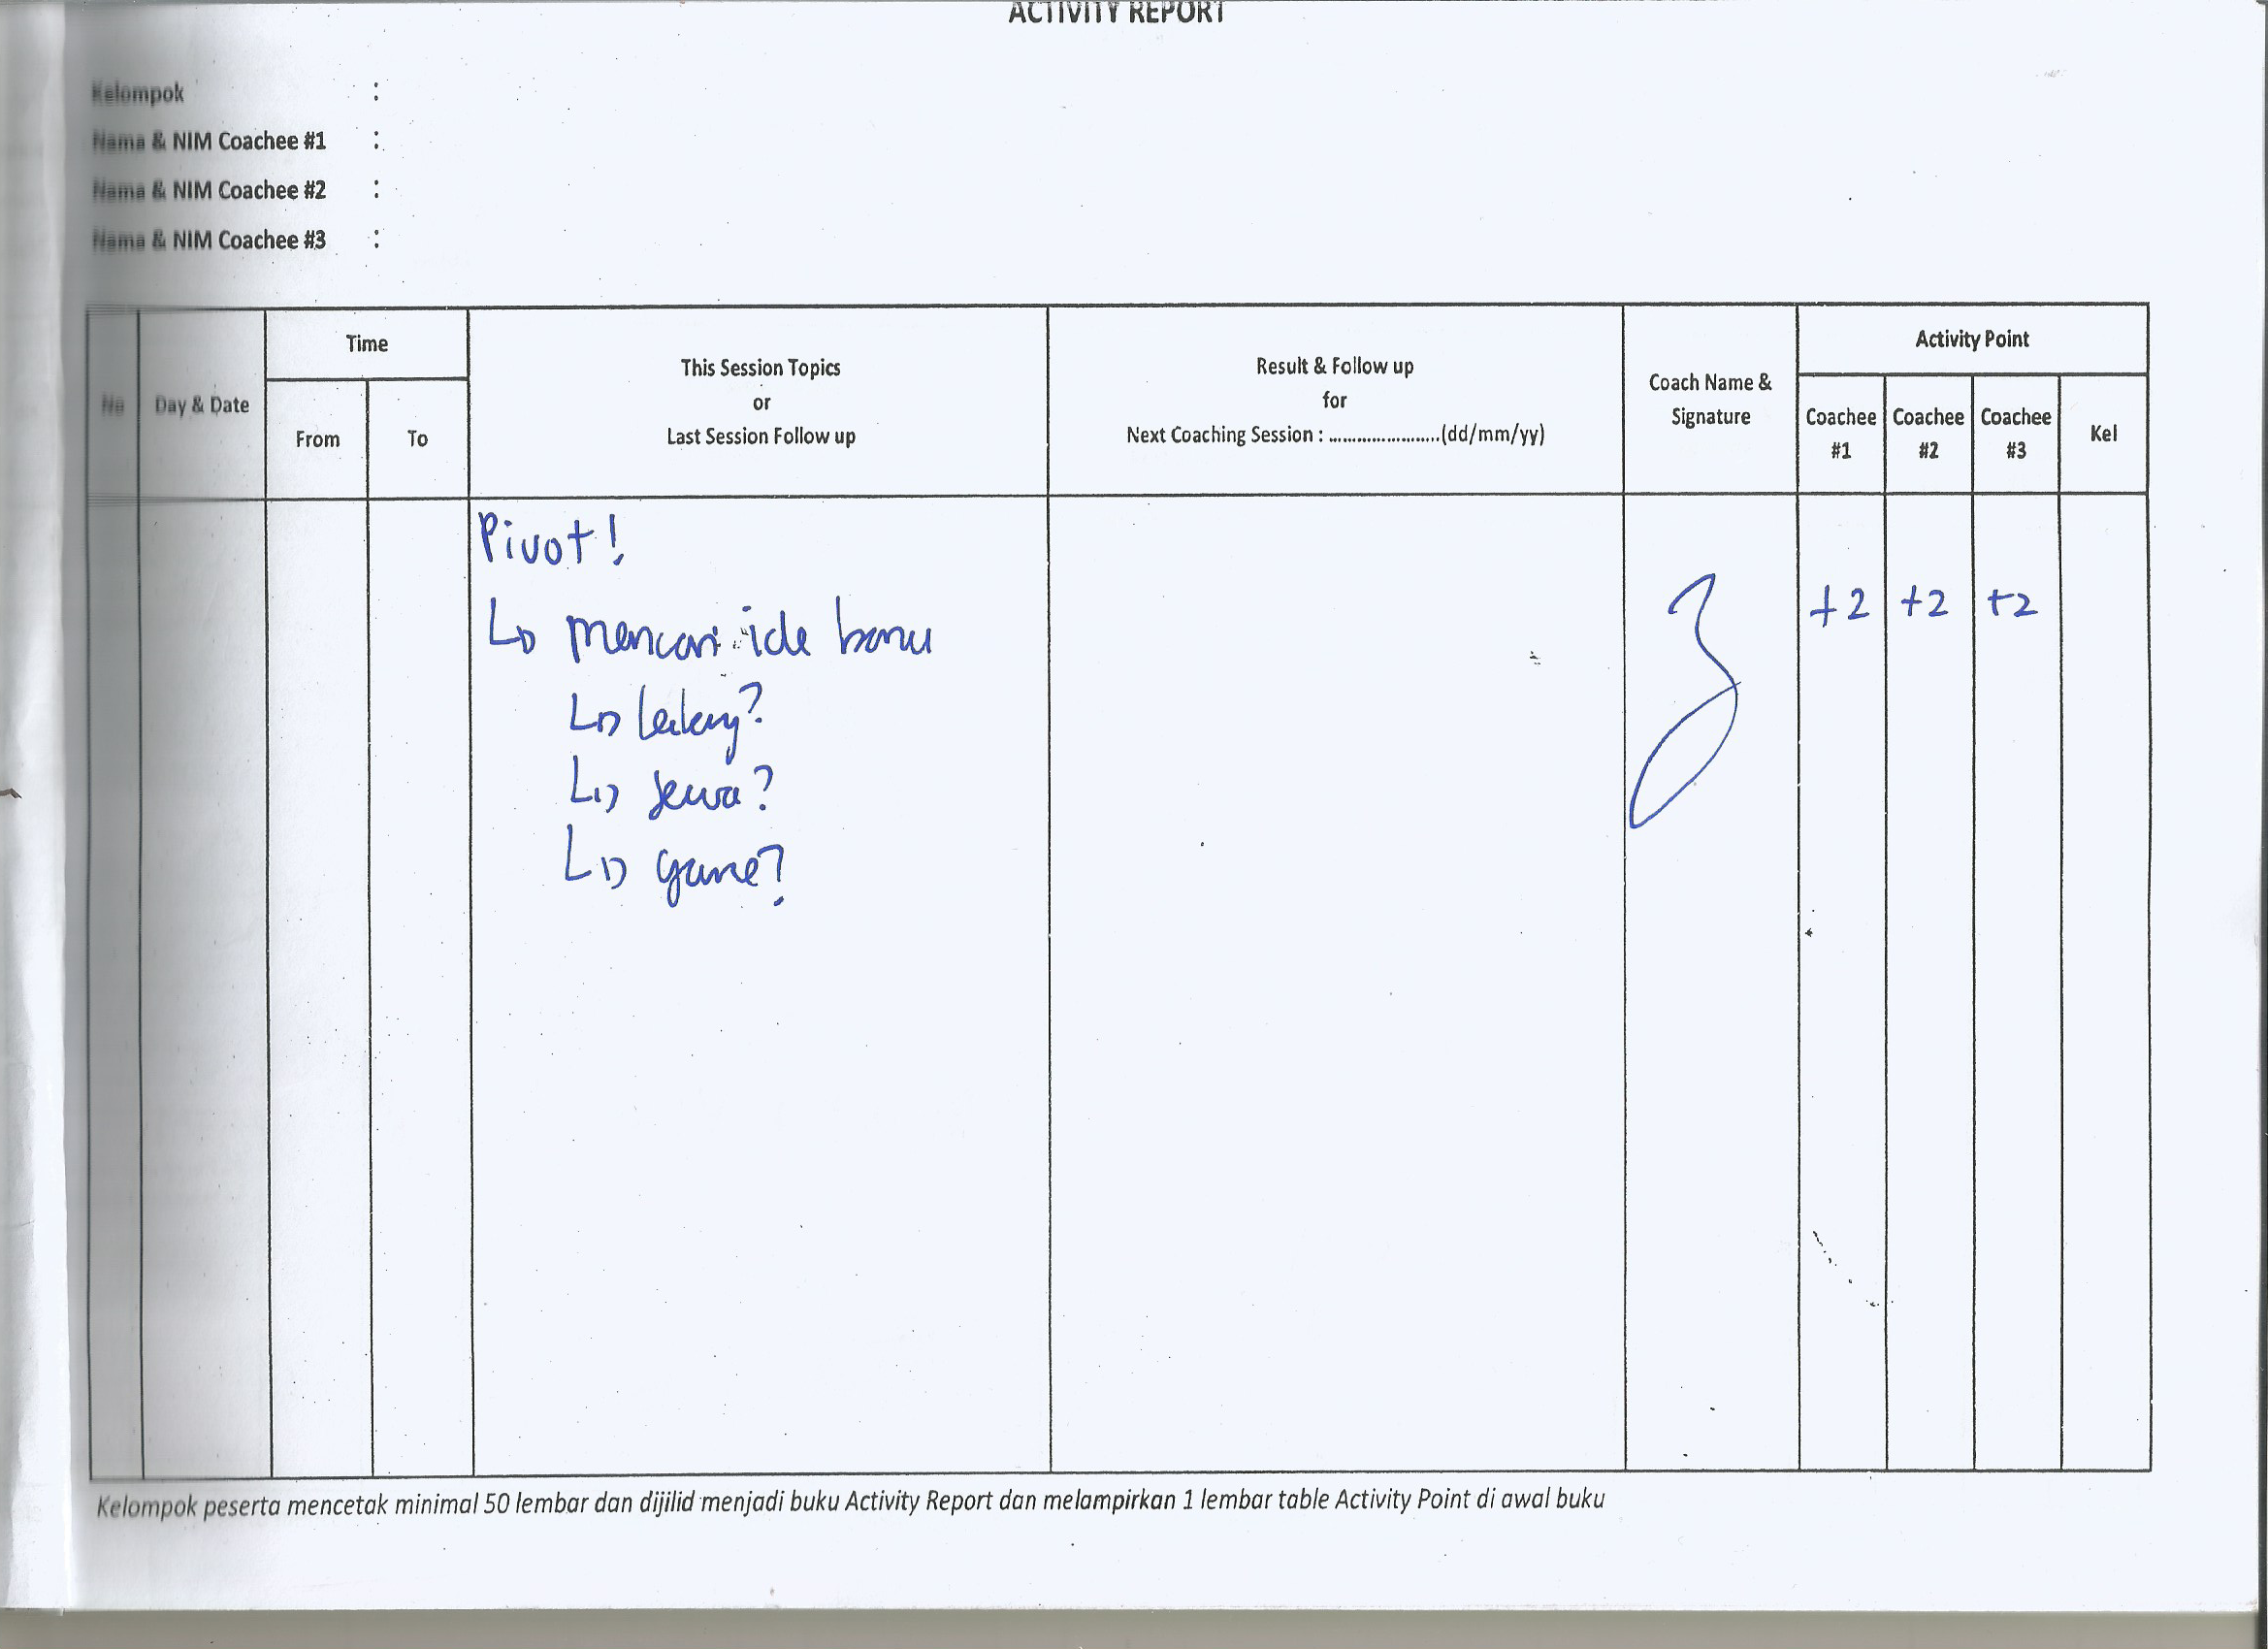 ACTIVITY REPORT
Kelompok :
Nama & NIM Coachee #1 :
Nama & NIM Coachee #2 :
Nama & NIM Coachee #3 :
No
Day & Date
Time
From
To
This Session Topics
or
Last Session Follow up
Result & Follow up
for
Next Coaching Session : ........................(dd/mm/yy)
Coach Name &
Signature
Activity Point
Coachee
#1
Coachee
#2
Coachee
#3
Kel
Pivot!
mencari ide baru
lelang?
sewa?
game?
+2 +2 +2
Kelompok peserta mencetak minimal 50 lembar dan dijilid menjadi buku Activity Report dan melampirkan 1 lembar table Activity Point di awal buku